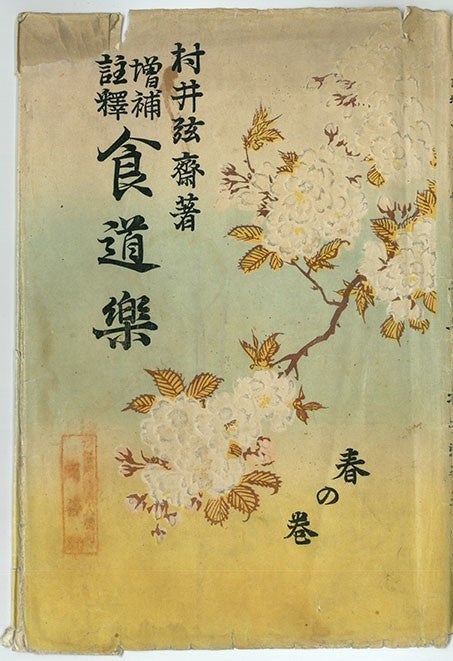 村井弦齋著
增補
註釋
食道樂
春の卷